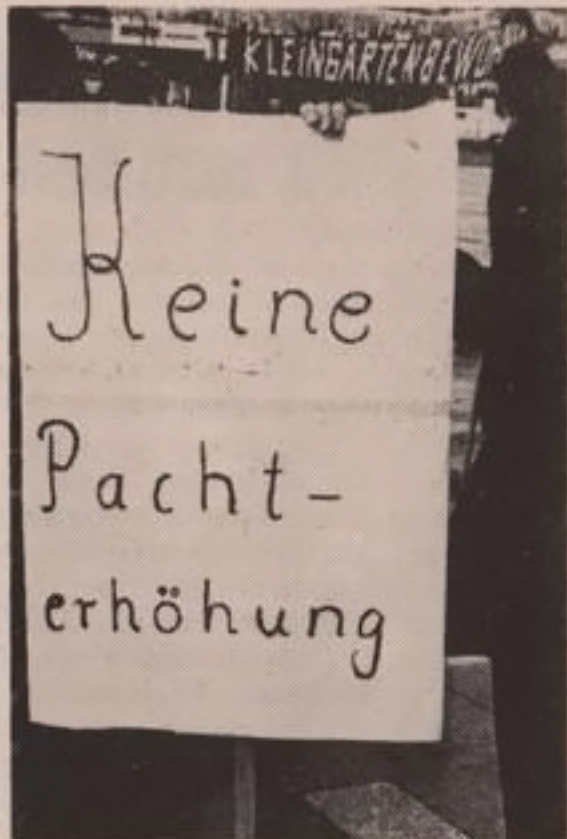 KLEINGARTENBEW
Keine
Pacht-
erhöhung